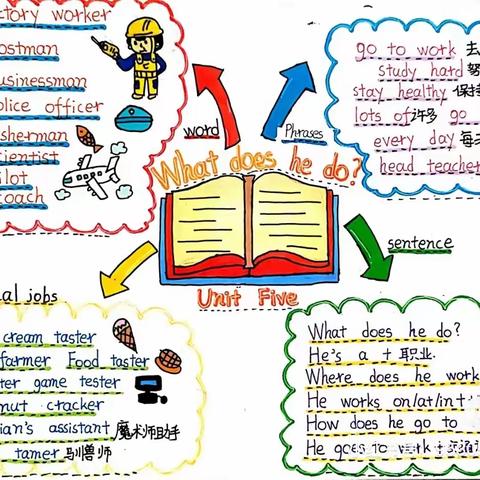 ctory worker
ostman
usinessman
olice officer
sherman
cientist
ilot
oach
word
Phrases
go to work 去
study hard 努
stay healthy 保持
lots of 许多 go
every day 每
head teacher
What does he do?
Unit Five
sentence
al jobs
cream taster
farmer Food taster
ter game tester
nut cracker
ian's assistant 魔术师助手
tamer 驯兽师
What does he do?
He's a + 职业.
Where does he work
He works on/at/in +
How does he go to
He goes to work +